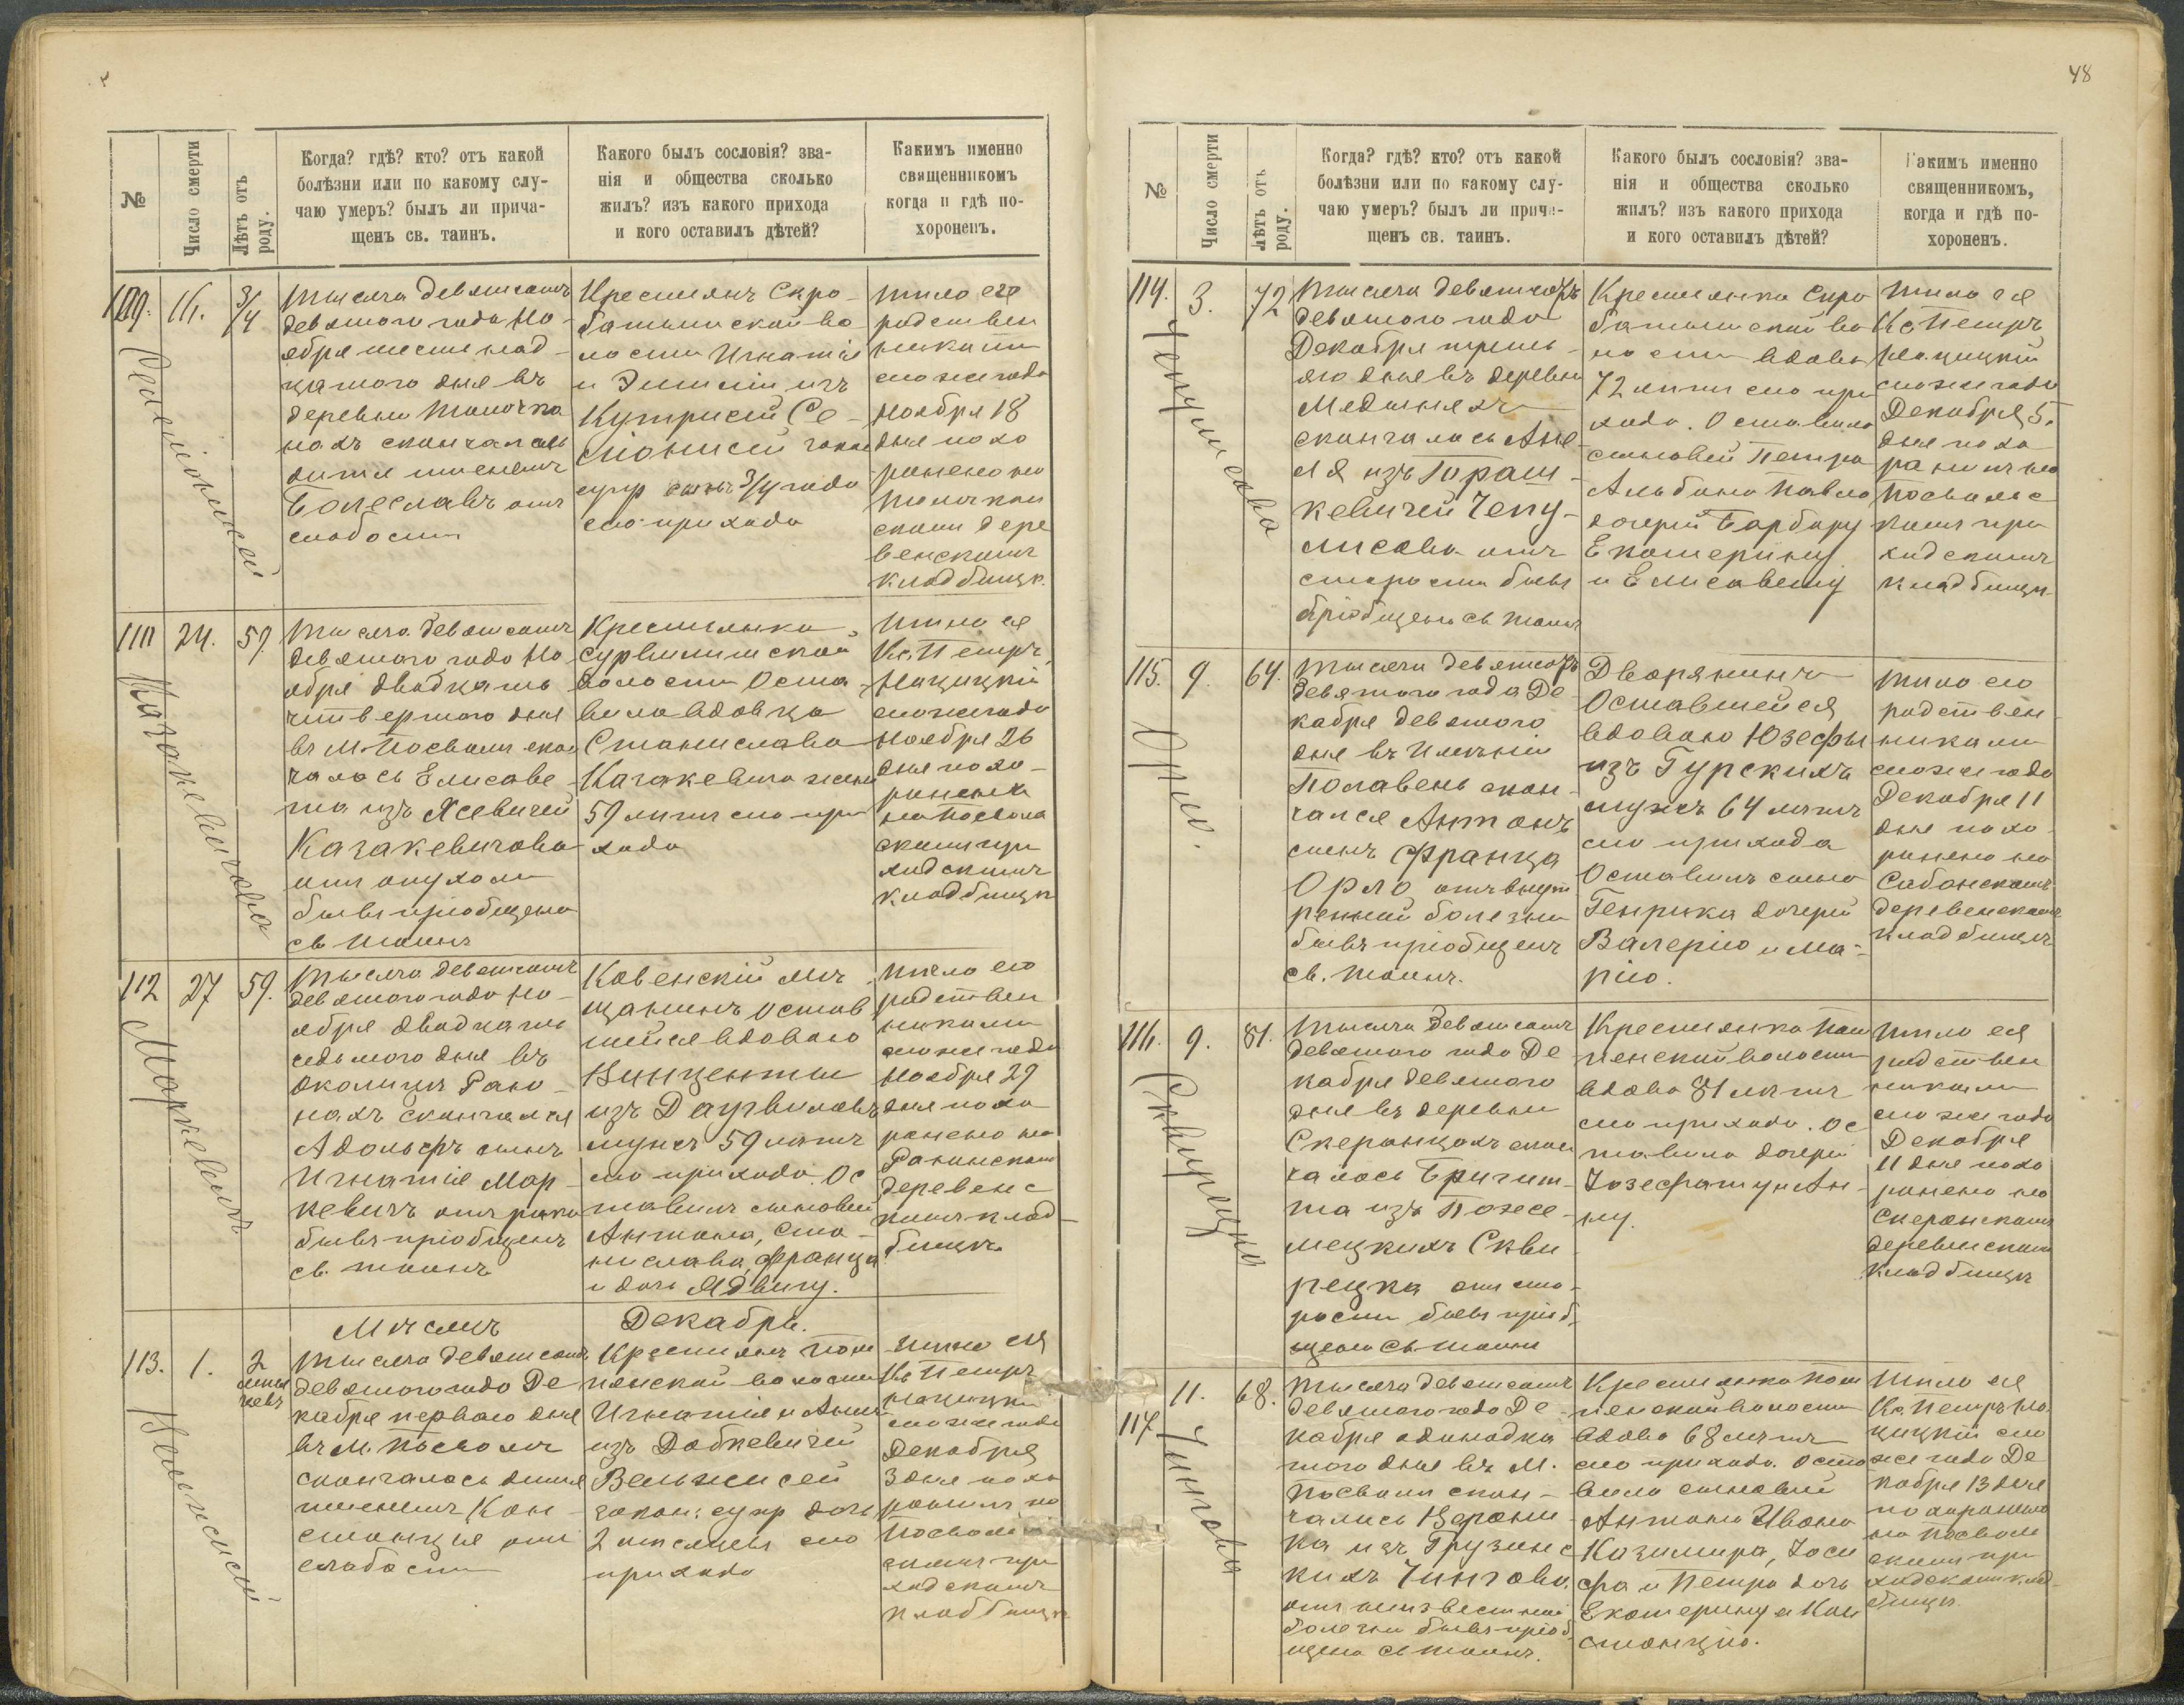 48
№
Число смерти
Лѣтъ отъ роду.
Когда? гдѣ? кто? отъ какой
болѣзни или по какому слу-
чаю умеръ? былъ ли прича-
щенъ св. таинъ.
Какого былъ сословія? зва-
нія и общества сколько
жилъ? изъ какого прихода
и кого оставилъ дѣтей?
Какимъ именно
священникомъ
когда и гдѣ по-
хороненъ.
16.
3/4
Тысяча девятьсотъ
девятого года Но-
ября шестнад-
цатого дня въ
деревни
нахъ скончалось
дитя именемъ
Болеславъ отъ
слабости
Крестьянъ Скро-
батышской во-
лости Игнатія
и Эмиліи изъ
законн
супр сынъ 3/4 года
сего прихода
тѣло его
родствен
никами
сего же года
Ноября 18
дня похо
ронено на
скомъ дере
венскомъ
кладбищѣ
24.
59.
Казакевичова
Тысяча девятьсотъ
девятого года Но
ября двадцать
четвертого дня
въ М. Посволѣ скон
чалась Елисаве
та изъ Ясевичей
Казакевичова
отъ опухоли
бывъ пріобщена
св. таинъ
Крестьянка
волости Оста
вила вдовца
Станислава
Казакевича жена
59 лѣтъ сего при
хода
тѣло ея
Кс. Петръ
сего же года
Ноября 26
дня похо-
ронено
на Посволь
скомъ при
ходскомъ
кладбищѣ
112
27
59.
Маркевичъ
Тысяча девятьсотъ
девятого года Но-
ября двадцать
седьмого дня въ
околицѣ
нахъ скончался
Адольфъ сынъ
Игнатія Мар-
кевичъ отъ рака
бывъ пріобщенъ
св. таинъ
Ковенскій мѣ
щанинъ остав
шейся вдовою
Винценты
изъ
мужъ 59 лѣтъ
сего прихода. Ос
тавилъ сыновей
Антона, Ста-
нислава, Франца
и дочь Ядвигу.
тѣло его
родствен
никами
сего же года
Ноября 29
дня похо
ронено на
деревенс
комъ клад-
бищѣ
Мѣсяцъ
Декабрь.
113.
1.
2
Тысяча девятьсотъ
девятого года Де
кабря первого дня
въ М. Посволѣ
скончалась дитя
именемъ Кон-
станція отъ
слабости
Крестьянъ
волости
Игнатія и Анны
изъ Добкевичей
закон: супр дочь
2 мѣсяцевъ сего
прихода
тѣло ея
Кс Петръ
сего же года
Декабря
3 дня похо
ронилъ на
Посволь
скомъ при
ходскомъ
кладбищѣ
№
Число смерти
Лѣтъ отъ роду.
Когда? гдѣ? кто? отъ какой
болѣзни или по какому слу-
чаю умеръ? былъ ли прича-
щенъ св. таинъ.
Какого былъ сословія? зва-
нія и общества сколько
жилъ? изъ какого прихода
и кого оставилъ дѣтей?
Какимъ именно
священникомъ,
когда и гдѣ по-
хороненъ.
114.
3.
72
Тысяча девятьсотъ
девятого года
Декабря треть-
яго дня въ деревни
скончалась Ане-
ля изъ Траш-
кевичей Чепу-
лисова отъ
старости бывъ
пріобщена св таинъ
Крестьянка Скро
батышской во
лости вдова
72 лѣтъ сего при
хода. Оставила
сыновей Петра
Альбина Павла
дочерей Барбару
Екатерину
и Елисавету
тѣло ея
Кс Петръ
сего же года
Декабря 5.
дня похо
ронилъ на
Посвольс
комъ при
ходскомъ
кладбищѣ
115.
9.
64.
Орло.
Тысяча девятьсотъ
девятого года Де
кабря девятого
дня въ имѣніи
Полавень скон-
чался Антонъ
сынъ Франца
Орло отъ внут
ренней болезни
бывъ пріобщенъ
св. таинъ.
Дворянинъ
Оставшейся
вдовою Юзефы
изъ Гурскихъ
мужъ 64 лѣтъ
сего прихода
Оставилъ сына
Генрика дочерей
Валерію и Ма-
рію.
тѣло его
родствен
никами
сего же года
Декабря 11
дня похо
ронено на
деревенскомъ
кладбищѣ
116.
9.
81.
Сквирецка
Тысяча девятьсотъ
девятого года Де
кабря девятого
дня въ деревни
Скеранцахъ скон
чалась Бригит-
та изъ Поже-
мецкихъ Скви
рецка отъ ста-
рости бывъ пріоб
щена св. таинъ
Крестьянка
волости
вдова 81 лѣтъ
сего прихода. Ос
тавила дочерей
Іозефату и Ан-
ну.
тѣло ея
родствен
никами
сего же года
Декабря
11 дня похо
ронено на
Скеранскомъ
деревенскомъ
кладбищѣ
117
11.
68.
Тысяча девятьсотъ
девятого года Де
кабря одинадца
того дня въ М.
Посволѣ скон-
чалась Верони
ка изъ Грузинс
кихъ
отъ неизвестной
болезни бывъ пріоб
щена св таинъ.
Крестьянка
волости
вдова 68 лѣтъ
сего прихода. Оста
вила сыновей
Антона Ивана
Казимира, Іоси
фа и Петра дочь
Екатерину и Кон
станцію.
тѣло ея
Кс. Петръ
сего
же года Де
кабря 13 дня
похоронено
на Посволь
скомъ при
ходскомъ клад
бищѣ